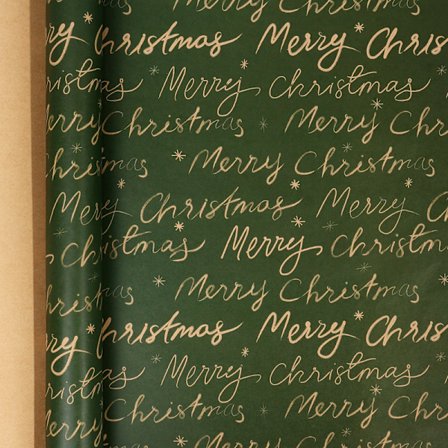 Christmas Merry Christmas
Merry Christmas Merry Chris
Christmas Merry Christmas
Merry Christmas Merry Chr
Christmas Merry Christmas
Merry Christmas Merry C
Christmas Merry Christm
Christmas Merry Christmas
Merry Christmas Merry Chris
Christmas Merry Christmas
Merry Christmas Merry Chr
Christmas Merry Christmas